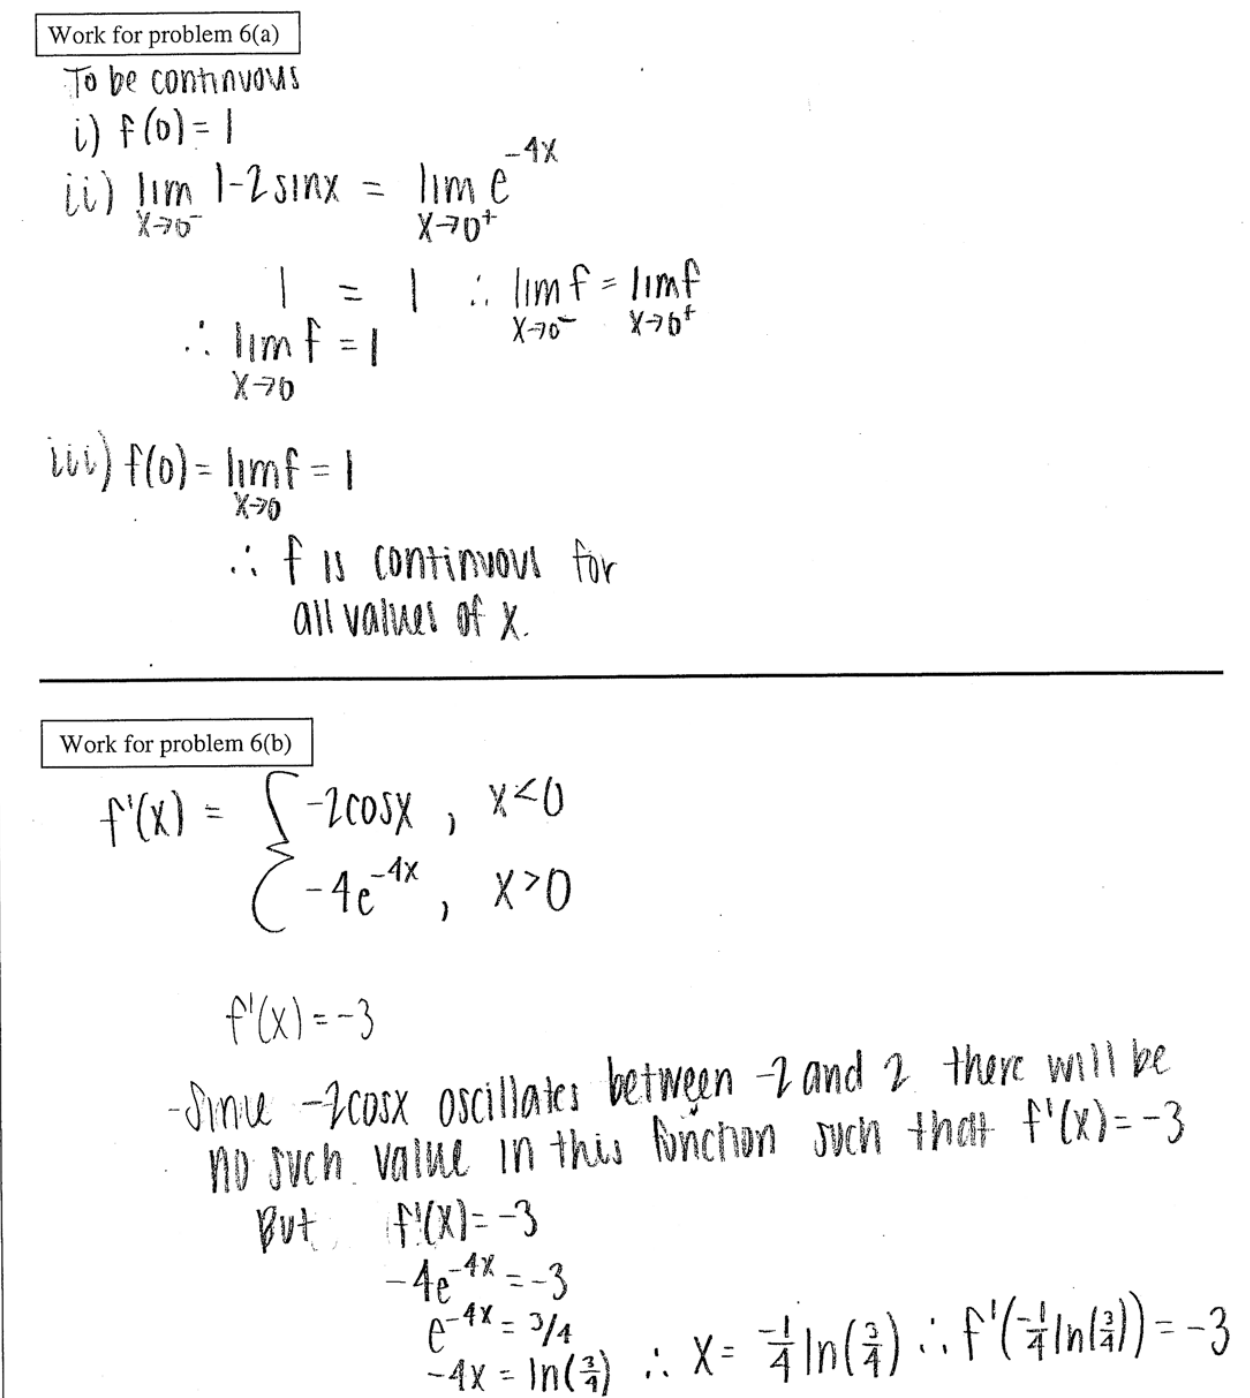 Work for problem 6(a)
To be continuous
i) f(0) = 1
ii) lim x→0⁻ 1-2sinx = lim x→0⁺ e^-4x
1 = 1 ∴ lim x→0⁻ f = lim x→0⁺ f
∴ lim x→0 f = 1
iii) f(0) = lim x→0 f = 1
∴ f is continuous for
all values of x.
Work for problem 6(b)
f'(x) = { -2cosx , x<0
-4e^-4x , x>0
f'(x) = -3
-Since -2cosx oscillates between -2 and 2 there will be
no such value in this function such that f'(x) = -3
But f'(x) = -3
-4e^-4x = -3
e^-4x = 3/4
-4x = ln(3/4) ∴ x = -1/4 ln(3/4) ∴ f'(-1/4 ln(3/4)) = -3